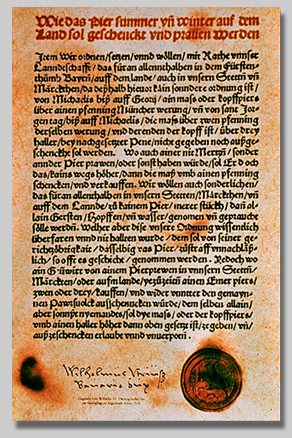 Wie das Pier summer vñ winter auf dem
Land sol geschenckt vnd prauen werden
Item Wir ordnen/setzen/vnnd wöllen/mit Rathe vnnser
Lanndtschafft/das füran allennthalben in dem Fürsten-
thümb Bayrn/auff dem lande/auch in vnsern Stettñ vñ
Märckthen/da deßhalb hieuor kain sonndere ordnung ist/
von Michaelis biß auff Georij/ain mass oder kopffpiers
über ainen pfenning Müncher werung/vñ von sant Jor-
gen tag/biß auff Michaelis/die mass über zwen pfenning
derselben werung/vnd derenden der kopff ist/über drey
haller/bey nachgesetzter Pene/nicht gegeben noch außge-
schenckht sol werden. Wo auch ainer nit Mertzñ/sonder
annder Pier prawen/oder sonst haben würde/sol Er doch
das/kains wegs höher/dann die maß vmb ainen pfenning
schencken/vnd verkauffen. Wir wöllen auch sonderlichen/
das füran allenthalben in vnsern Stettñ/Märckthen/vñ
auff dem Lannde/zů kainem Pier/merer stückh/dañ al-
lain Gersten/Hopffen/vñ wasser/genomen vñ gepraucht
sölle werdñ. Welher aber dise vnsere Ordnung wissentlich
überfaren vnnd nit hallten wurde/dem sol von seiner ge-
richtzöbrigkait/dasselbig vas Pier/zůstraff vnnachläß-
lich/so offt es geschicht/genommen werden. Yedoch wo
ain Gůwirt von ainem Pierprewen in vnnsern Stettñ/
Märckten/oder aufm lande/yezůzeiten ainen Emer piers/
zwen oder drey/kauffen/vnd wider vnnter den gemaynen
Pawrsuolck ausschencken würde/dem selben allain/
aber sonnst nyemandes/sol dye mass/oder der kopffpiers/
vmb ainen haller höher dann oben gesetzt ist/zegeben/vñ/
außzeschencken erlaubt vnnd vnuerpotñ.